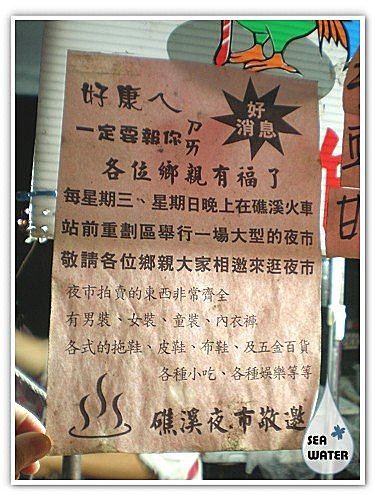 好康ㄟ
好
消息
一定要報你ㄗㄞ
各位鄉親有福了
每星期三、星期日晚上在礁溪火車
站前重劃區舉行一場大型的夜市
敬請各位鄉親大家相邀來逛夜市
夜市拍賣的東西非常齊全
有男裝、女裝、童裝、內衣褲
各式的拖鞋、皮鞋、布鞋、及五金百貨
各種小吃、各種娛樂等等
礁溪夜市敬邀
SEA
WATER